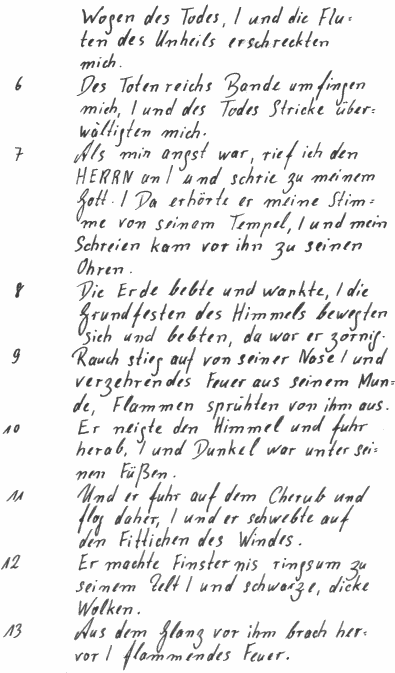 Wogen des Todes, | und die Flu=
ten des Unheils erschreckten
mich.
6 Des Totenreichs Bande umfingen
mich, | und des Todes Stricke über=
wältigten mich.
7 Als mir angst war, rief ich den
HERRN an | und schrie zu meinem
Gott. | Da erhörte er meine Stim=
me von seinem Tempel, | und mein
Schreien kam vor ihn zu seinen
Ohren.
8 Die Erde bebte und wankte, | die
Grundfesten des Himmels bewegten
sich und bebten, da war er zornig.
9 Rauch stieg auf von seiner Nase | und
verzehrendes Feuer aus seinem Mun=
de, Flammen sprühten von ihm aus.
10 Er neigte den Himmel und fuhr
herab, | und Dunkel war unter sei=
nen Füßen.
11 Und er fuhr auf dem Cherub und
flog daher, | und er schwebte auf
den Fittichen des Windes.
12 Er machte Finsternis ringsum zu
seinem Zelt | und schwarze, dicke
Wolken.
13 Aus dem Glanz vor ihm brach her=
vor | flammendes Feuer.